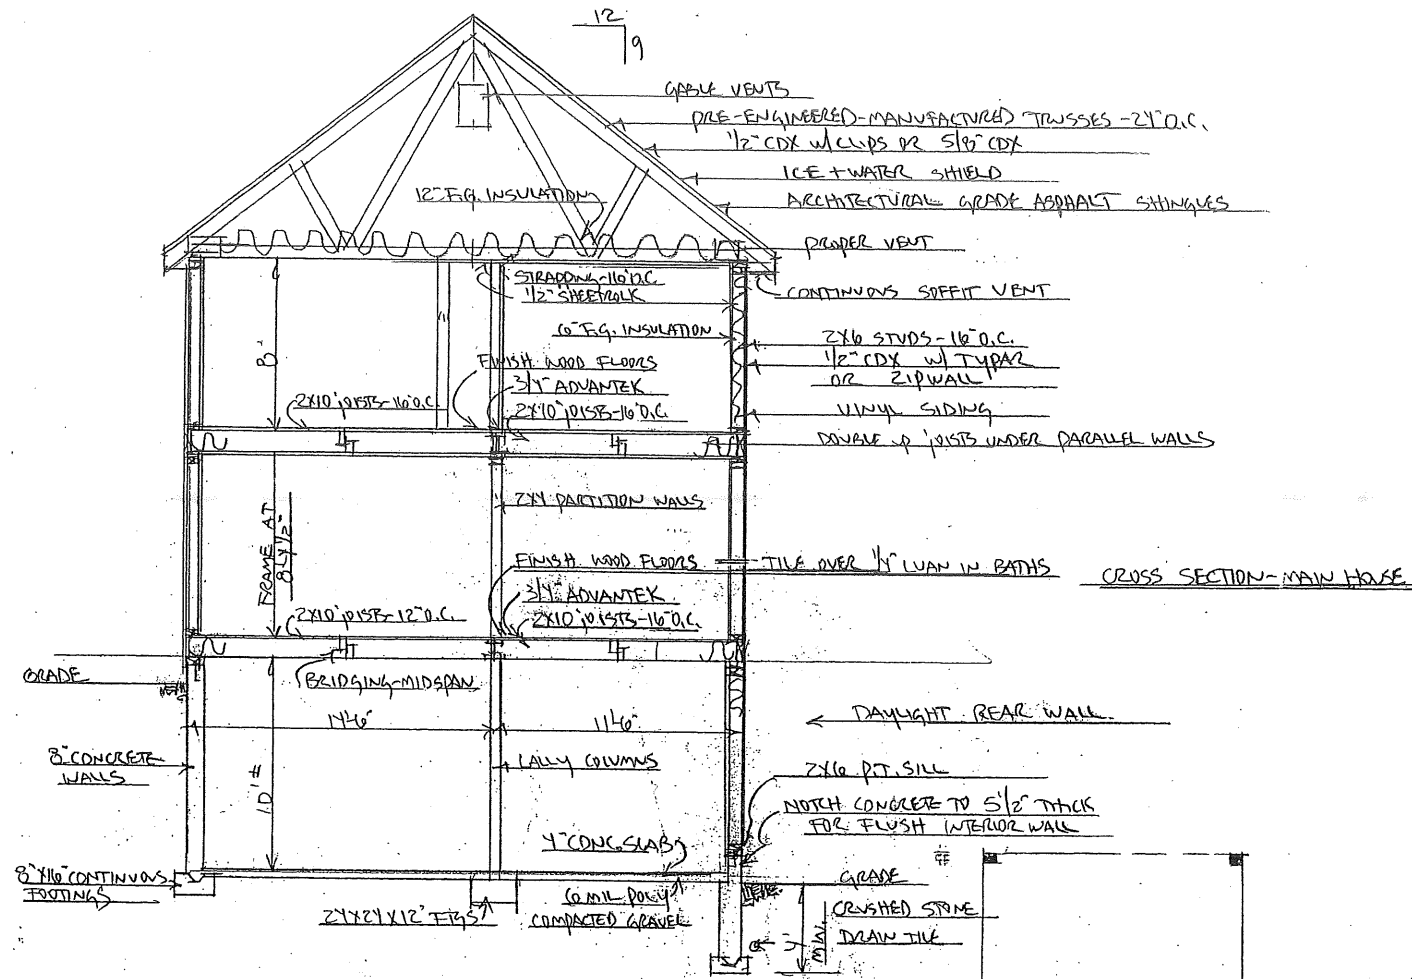 12
9
GABLE VENTS
PRE-ENGINEERED-MANUFACTURED TRUSSES-24" O.C.
1/2" CDX W/CLIPS OR 5/8" CDX
ICE + WATER SHIELD
12" F.G. INSULATION
ARCHITECTURAL GRADE ASPHALT SHINGLES
PROPER VENT
STRAPPING-16" O.C.
1/2" SHEETROCK
CONTINUOUS SOFFIT VENT
6" F.G. INSULATION
2X6 STUDS-16" O.C.
1/2" CDX W/ TYPAR
OR ZIPWALL
8'
FINISH WOOD FLOORS
3/4" ADVANTEK
2X10 JOISTS-16" O.C.
2X10 JOISTS-16" O.C.
VINYL SIDING
DOUBLE UP JOISTS UNDER PARALLEL WALLS
2X4 PARTITION WALLS
FRAME AT
FINISH WOOD FLOORS
TILE OVER 1/4" LUAN IN BATHS
CROSS SECTION-MAIN HOUSE
3/4" ADVANTEK
2X10 JOISTS-12" O.C.
2X10 JOISTS-16" O.C.
GRADE
BRIDGING-MIDSPAN
14'6"
11'6"
DAYLIGHT REAR WALL
8" CONCRETE
WALLS
10'±
LALLY COLUMNS
2X6 P.T. SILL
NOTCH CONCRETE TO 5 1/2" THICK
FOR FLUSH INTERIOR WALL
4" CONC. SLAB
8"X16" CONTINUOUS
FOOTINGS
6 MIL POLY
COMPACTED GRAVEL
24X24X12" FTGS
GRADE
CRUSHED STONE
DRAIN TILE
4'
MIN.